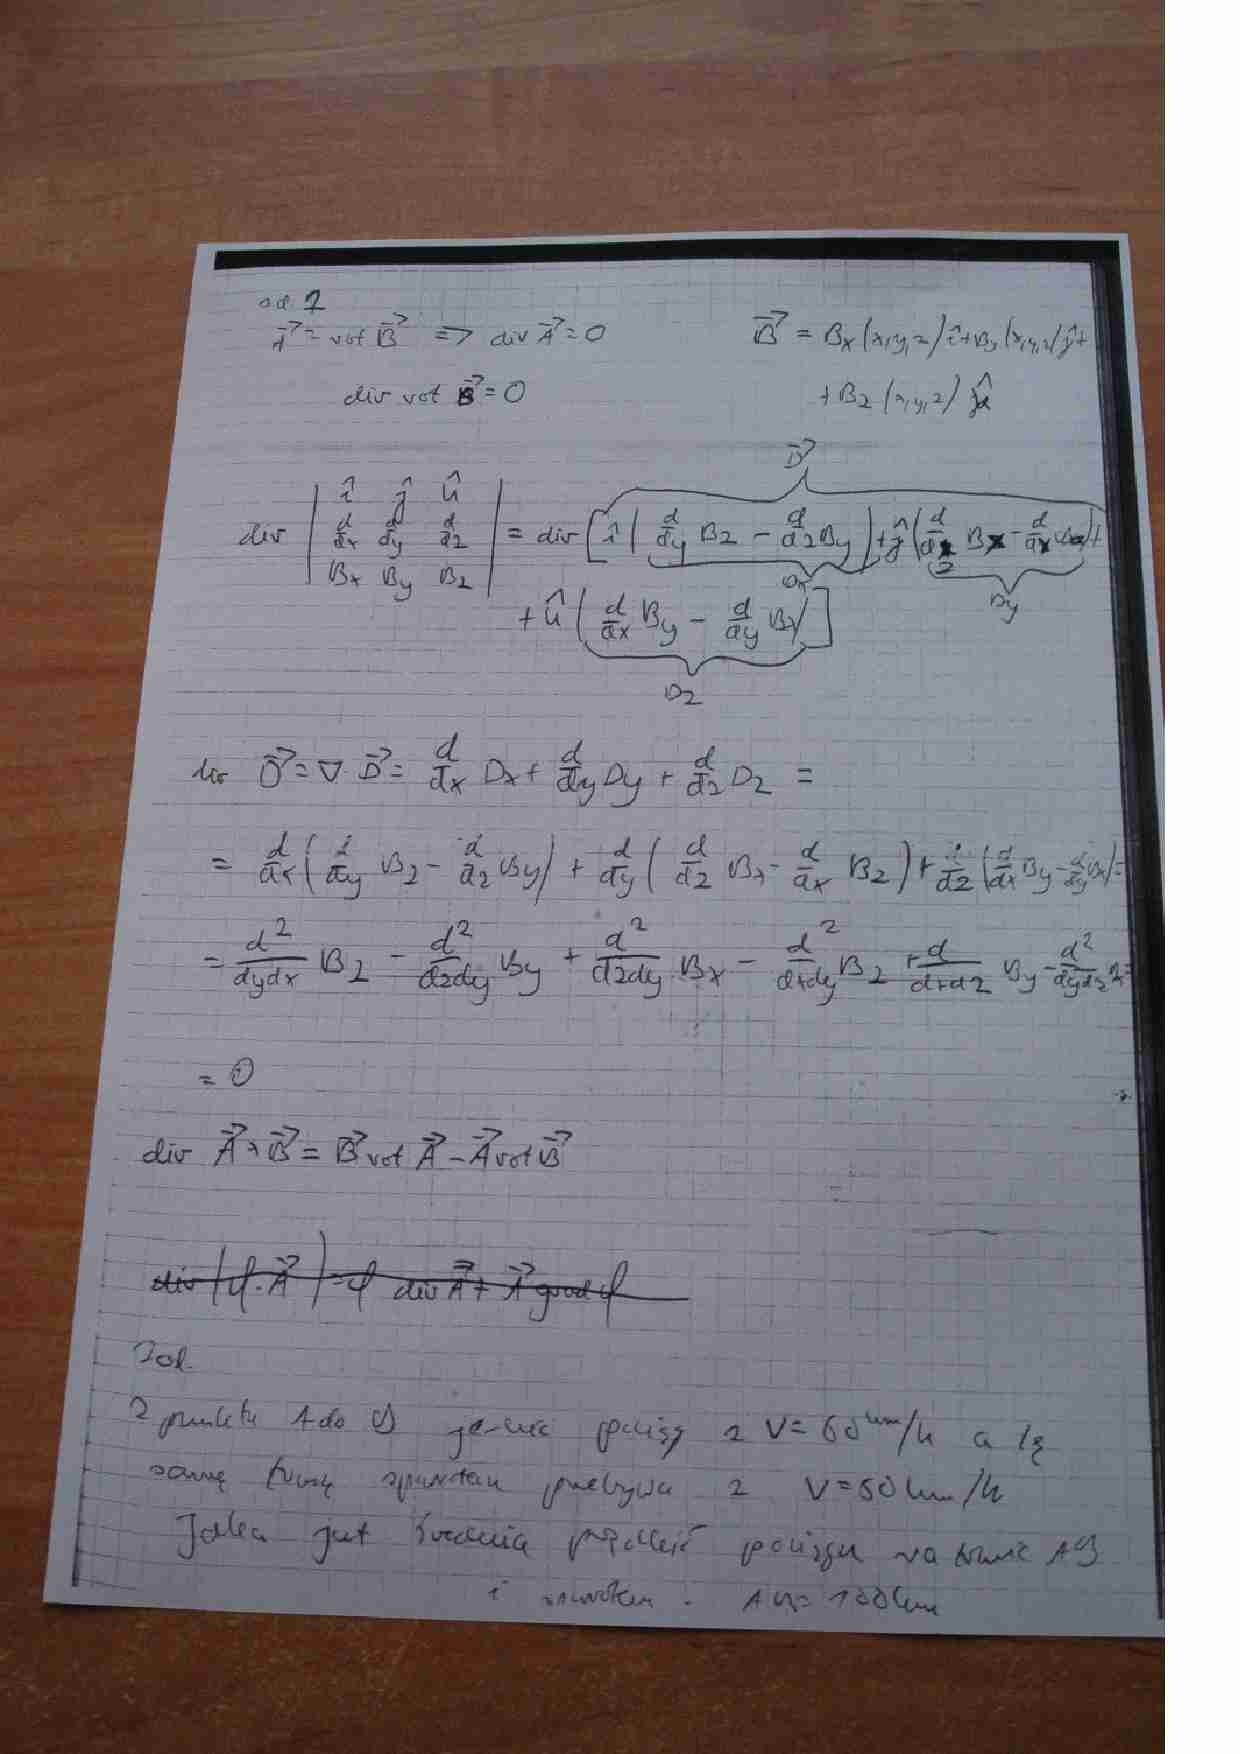 ad 1
A⃗ = rot B⃗ => div A⃗ = 0
B⃗ = Bx(x,y,z) î + By(x,y,z) ĵ +
div rot B⃗ = 0
+ Bz(x,y,z) k̂
D⃗
div | î ĵ k̂ |
| d/dx d/dy d/dz |
| Bx By Bz |
= div [ î ( d/dy Bz - d/dz By ) + ĵ ( d/dz Bx - d/dx Bz ) +
Dx Dy
+ k̂ ( d/dx By - d/dy Bx ) ]
Dz
div D⃗ = ∇ · D⃗ = d/dx Dx + d/dy Dy + d/dz Dz =
= d/dx ( d/dy Bz - d/dz By ) + d/dy ( d/dz Bx - d/dx Bz ) + d/dz ( d/dx By - d/dy Bx ) =
= d²/dydx Bz - d²/dzdy By + d²/dzdy Bx - d²/dxdy Bz + d/dxdz By - d²/dydz
= 0
div A⃗ × B⃗ = B⃗ rot A⃗ - A⃗ rot B⃗
div ( φ · A⃗ ) = φ div A⃗ + A⃗ grad φ
Zad.
Z punktu A do B pociąg z V = 60 km/h a tę
samą trasę z powrotem przebywa z V = 50 km/h
Jaka jest średnia prędkość pociągu na trasie AB
i z powrotem. AB = 100 km